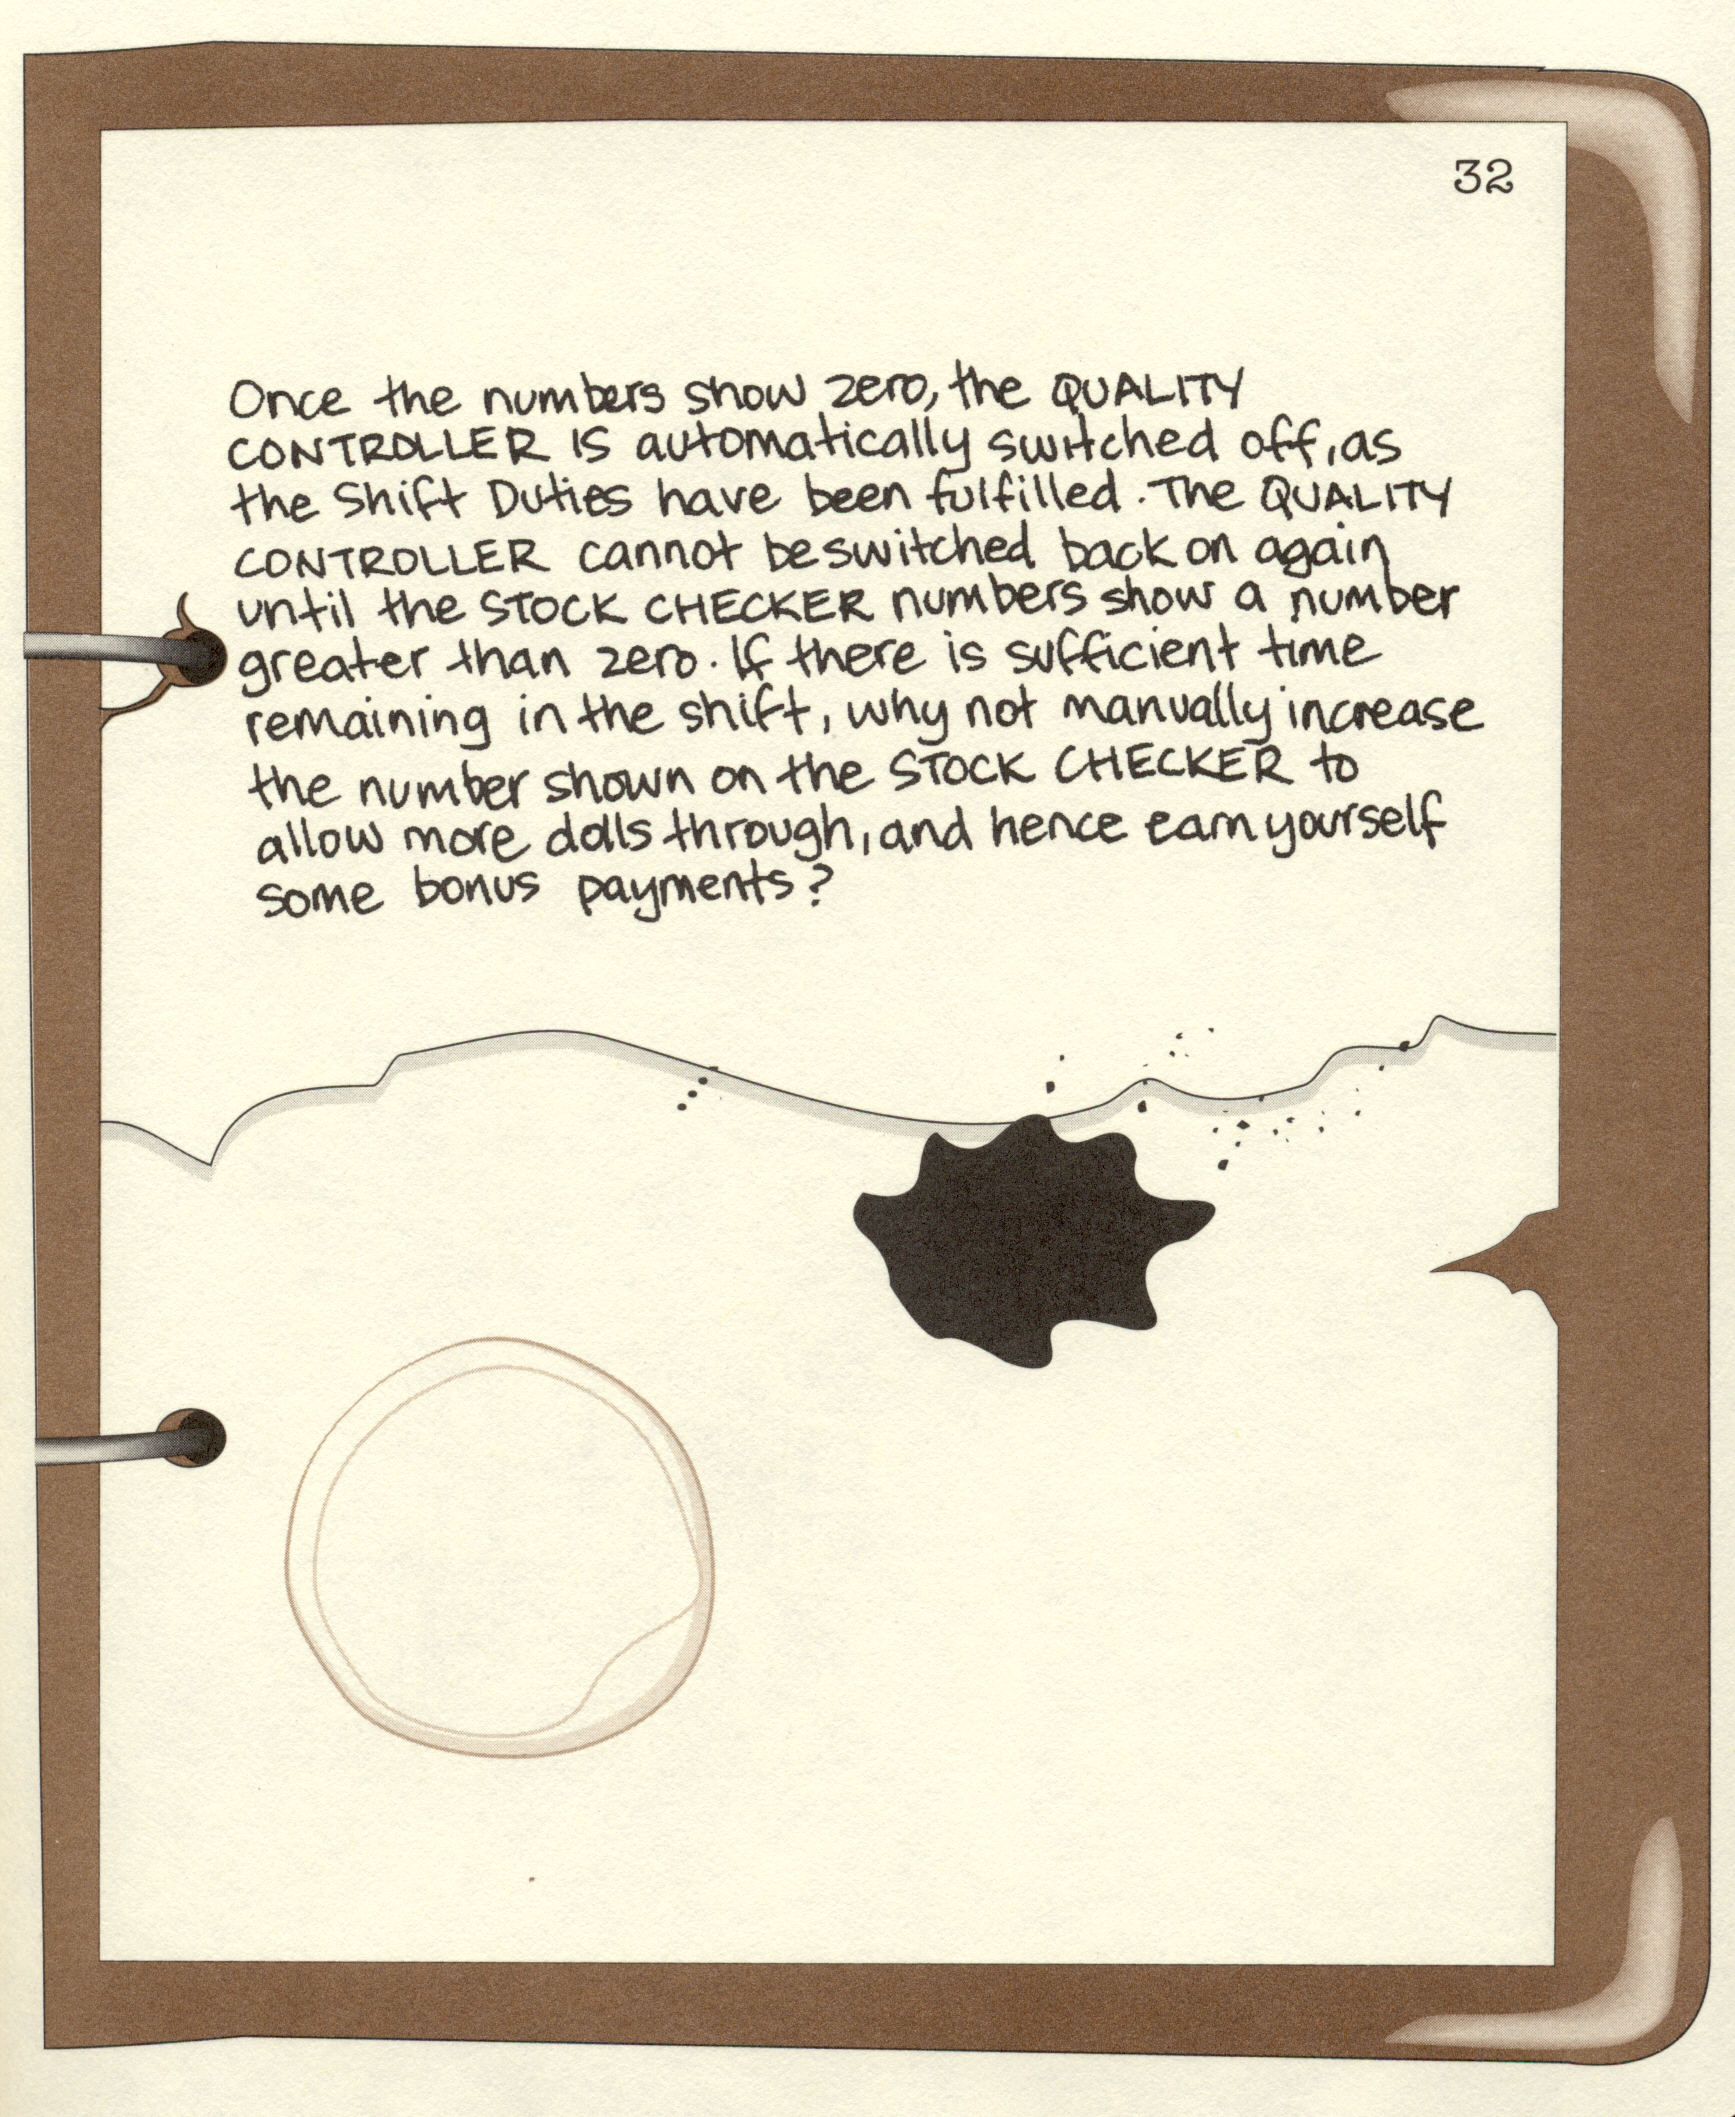 32
Once the numbers show zero, the QUALITY
CONTROLLER IS automatically switched off, as
the Shift Duties have been fulfilled. The QUALITY
CONTROLLER cannot be switched back on again
until the STOCK CHECKER numbers show a number
greater than zero. If there is sufficient time
remaining in the shift, why not manually increase
the number shown on the STOCK CHECKER to
allow more dolls through, and hence earn yourself
some bonus payments?